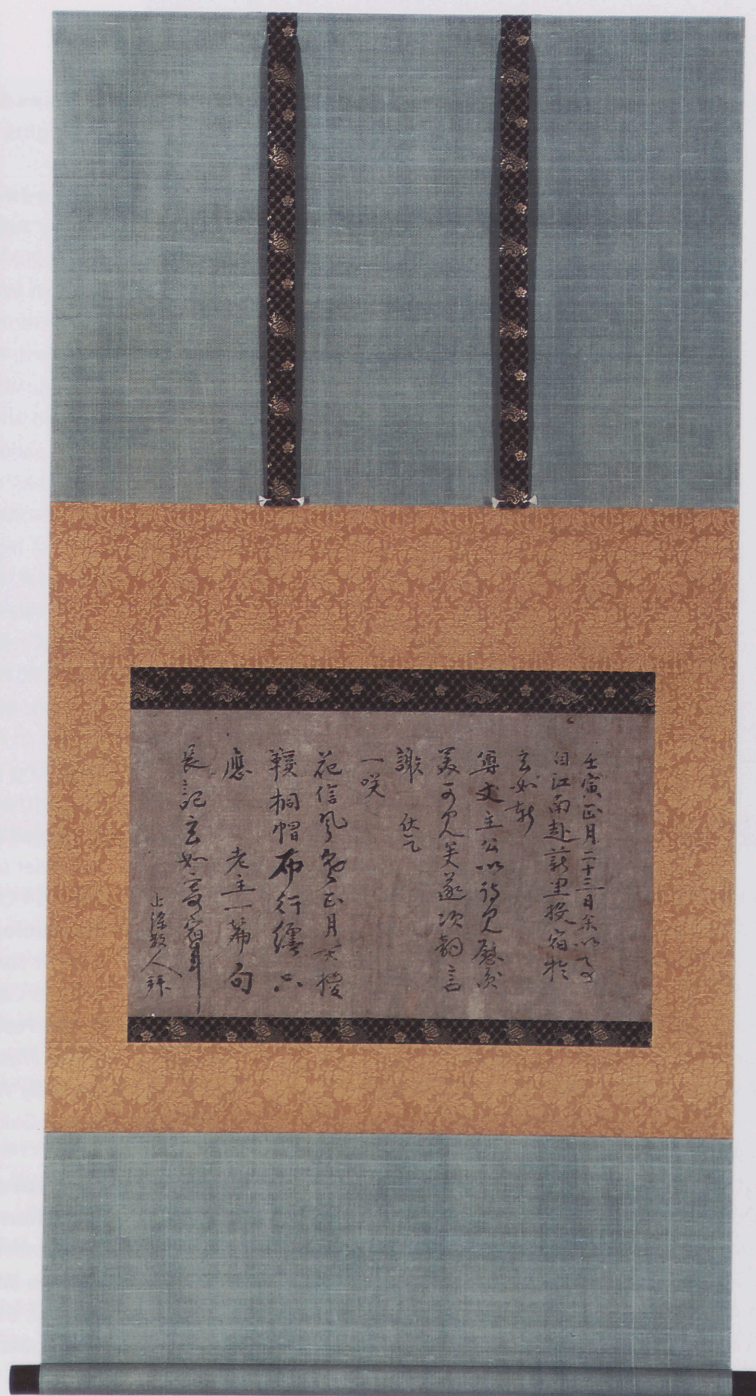 壬寅正月二十三日余以事
自江南赴薪里投宿於
玄如軒
尊丈主公以詩見慰
美可見矣遂次韵言
謝 伏乞
一咲
花信風 正月天
鞋桐帽布行纏只
應 老主一篇句
長記玄如寄宿年
人拜